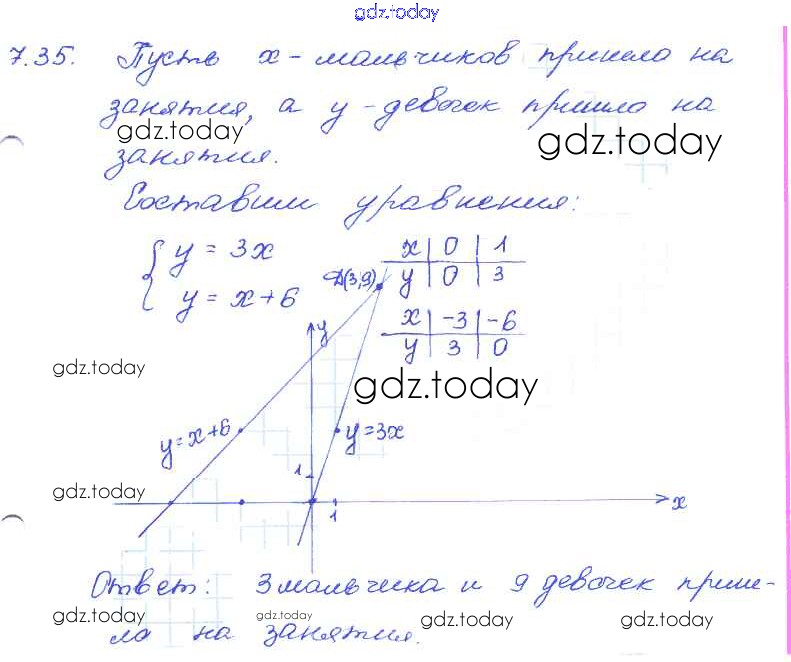 gdz.today
7.35. Пусть x - мальчиков пришло на
занятия, а y - девочек пришло на
gdz.today gdz.today
занятия.
Составим уравнения:
{ y = 3x
y = x+6
x | 0 | 1
y | 0 | 3
(3,9)
x | -3 | -6
y | 3 | 0
y
gdz.today gdz.today
y=x+6 y=3x
1
gdz.today
1 x
Ответ: 3 мальчика и 9 девочек приш-
gdz.today gdz.today gdz.today gdz.today
ло на занятия.